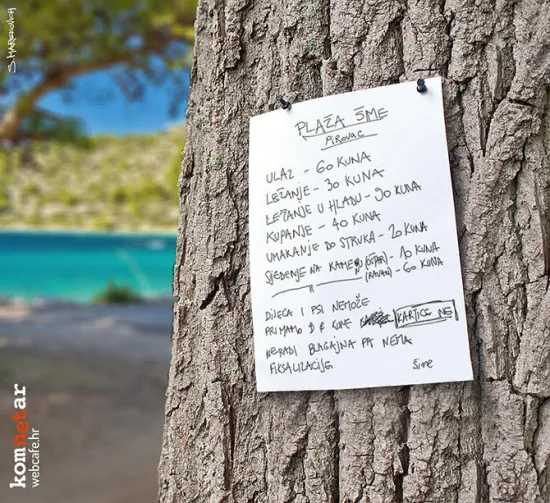 S. MAREKOVIĆ
PLAŽA ŠIME
PIROVAC
ULAZ - 60 KUNA
LEŽANJE - 30 KUNA
LEŽANJE U HLADU - 90 KUNA
KUPANJE - 40 KUNA
UMAKANJE DO STRUKA - 20 KUNA
SJEDENJE NA KAMENU (OŠTAR) - 10 KUNA
—— " —— (RAVAN) - 60 KUNA
DJECA I PSI NEMOŽE
PRIMAMO $ € KUNE KARTICE NE
NERADI BLAGAJNA PA NEMA
FISKALIZACIJE
Šime
komnetar
webcafe.hr